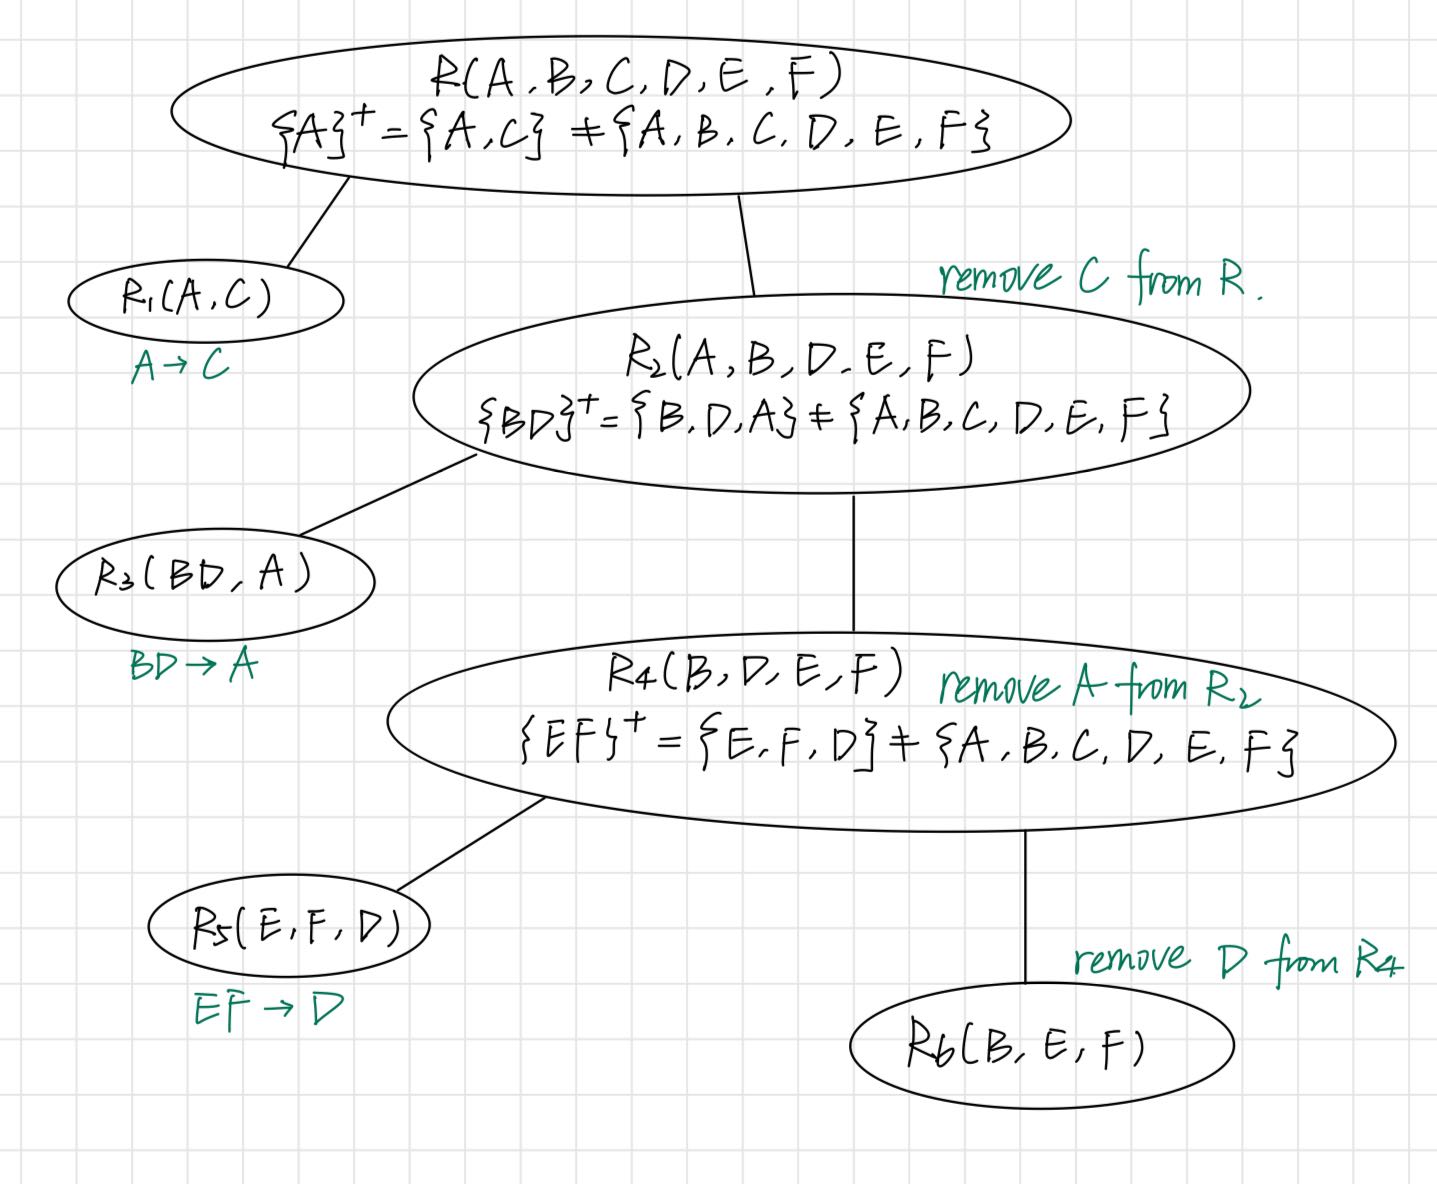 R(A.B,C,D,E,F)
{A}⁺={A,C}≠{A,B,C,D,E,F}
R₁(A,C)
A→C
remove C from R.
R₂(A,B,D.E,F)
{BD}⁺={B.D,A}≠{A,B,C,D,E,F}
R₃(BD,A)
BD→A
R₄(B,D,E,F)
remove A from R₂
{EF}⁺={E,F,D}≠{A,B,C,D,E,F}
R₅(E,F,D)
EF→D
remove D from R₄
R₆(B,E,F)